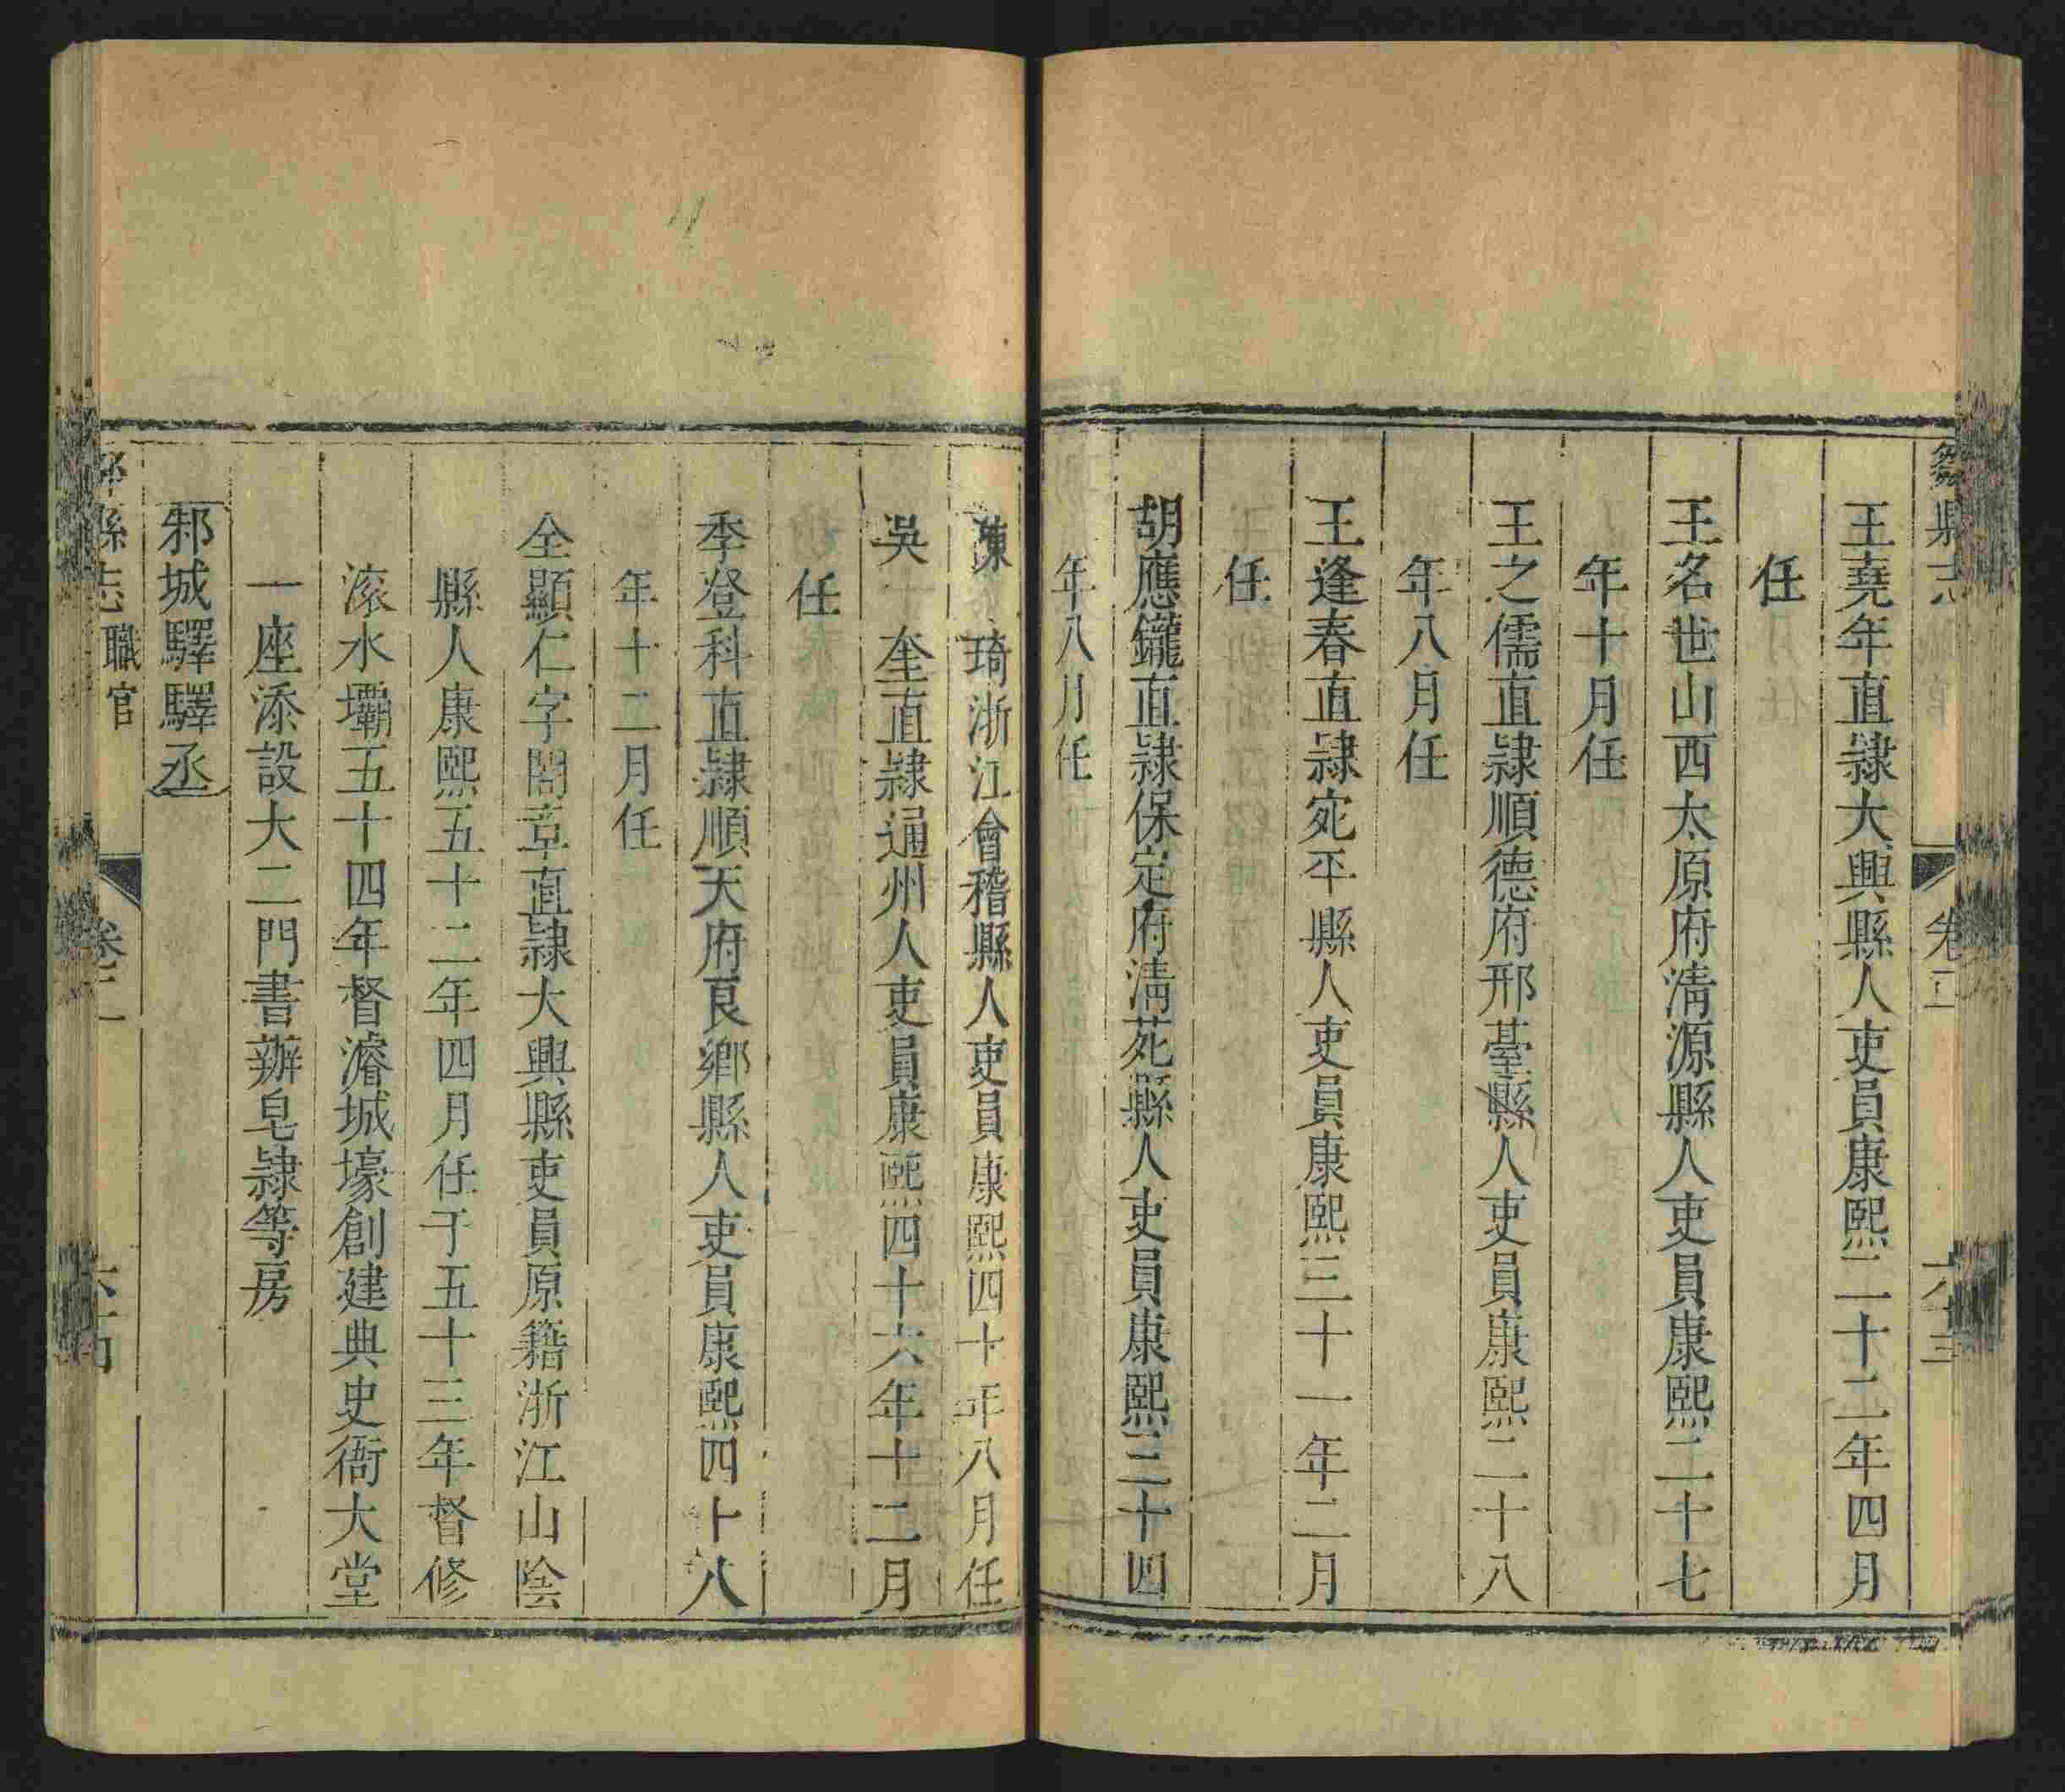 王堯年直隸大興縣人吏員康熙二十二年四月
任
王名世山西太原府清源縣人吏員康熙二十七
年十月任
王之儒直隸順德府邢臺縣人吏員康熙二十八
年八月任
王逢春直隸宛平縣人吏員康熙三十一年二月
任
胡應鑨直隸保定府清苑縣人吏員康熙三十四
年八月任
陳琦浙江會稽縣人吏員康熙四十年八月任
吳奎直隸通州人吏員康熙四十六年十二月
任
季登科直隸順天府良鄉縣人吏員康熙四十八
年十二月任
全顯仁字闇章直隸大興縣吏員原籍浙江山陰
縣人康熙五十二年四月任于五十三年督修
滚水壩五十四年督濬城壕創建典史衙大堂
一座添設大二門書辦皂隸等房
邾城驛驛丞
縣志 職官 卷三